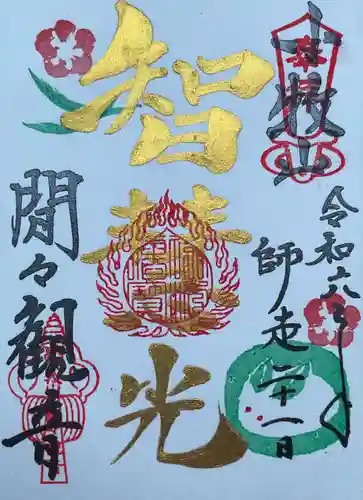 小牧山
令和六年
師走二十一日
智慧光
間々観音